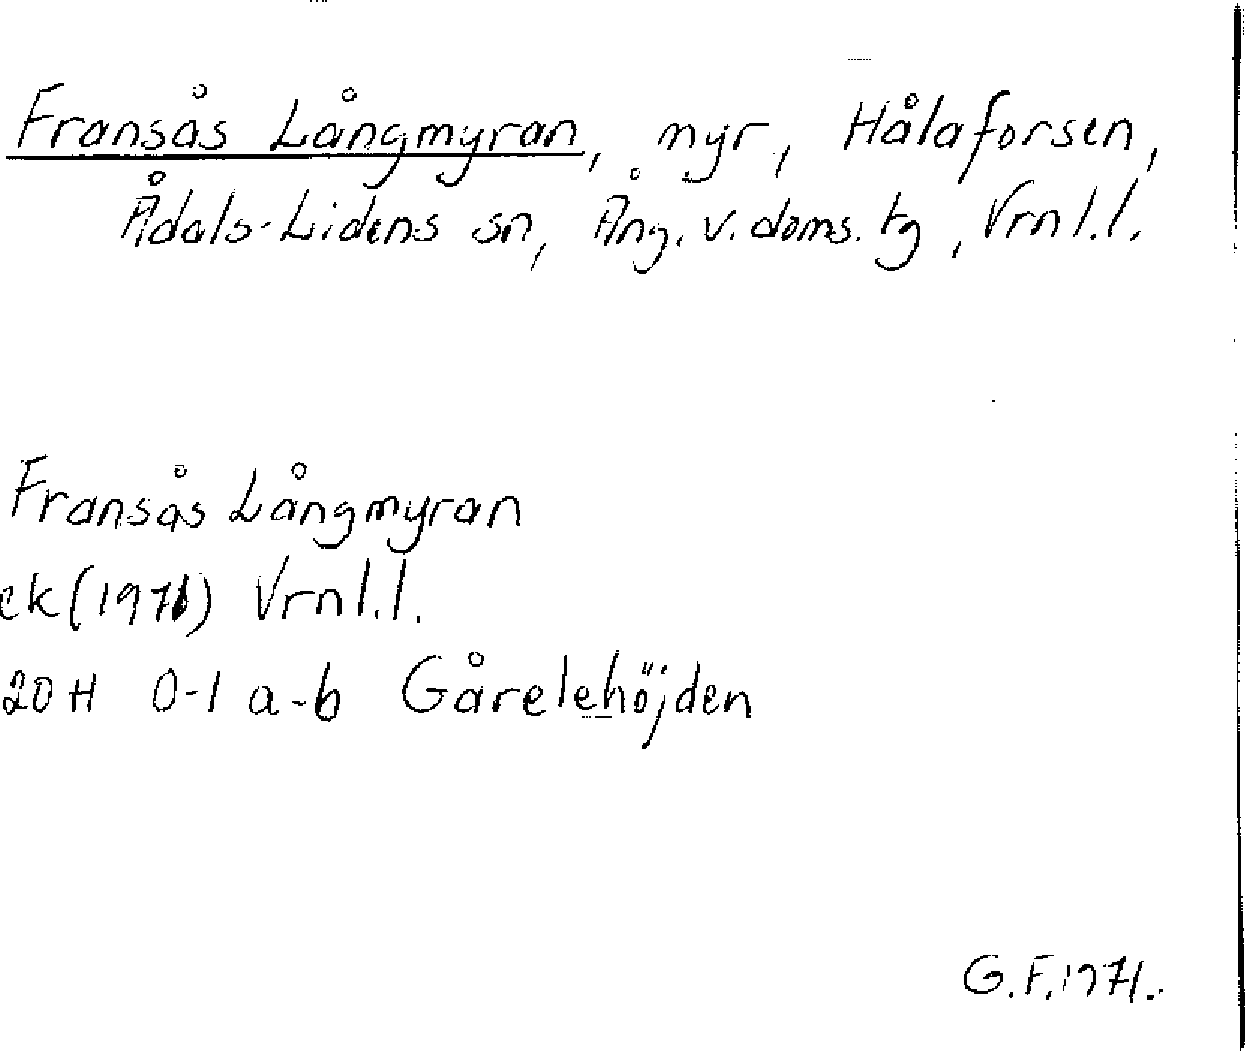 Fransås Långmyran, myr, Hålaforsen,
Ådals-Lidens sn, Ång. v. doms. tg, Vrnl.l.
Fransås Långmyran
ek (1971) Vrnl.l.
20 H 0-1 a-b Gårelehöjden
G.F. 1971.